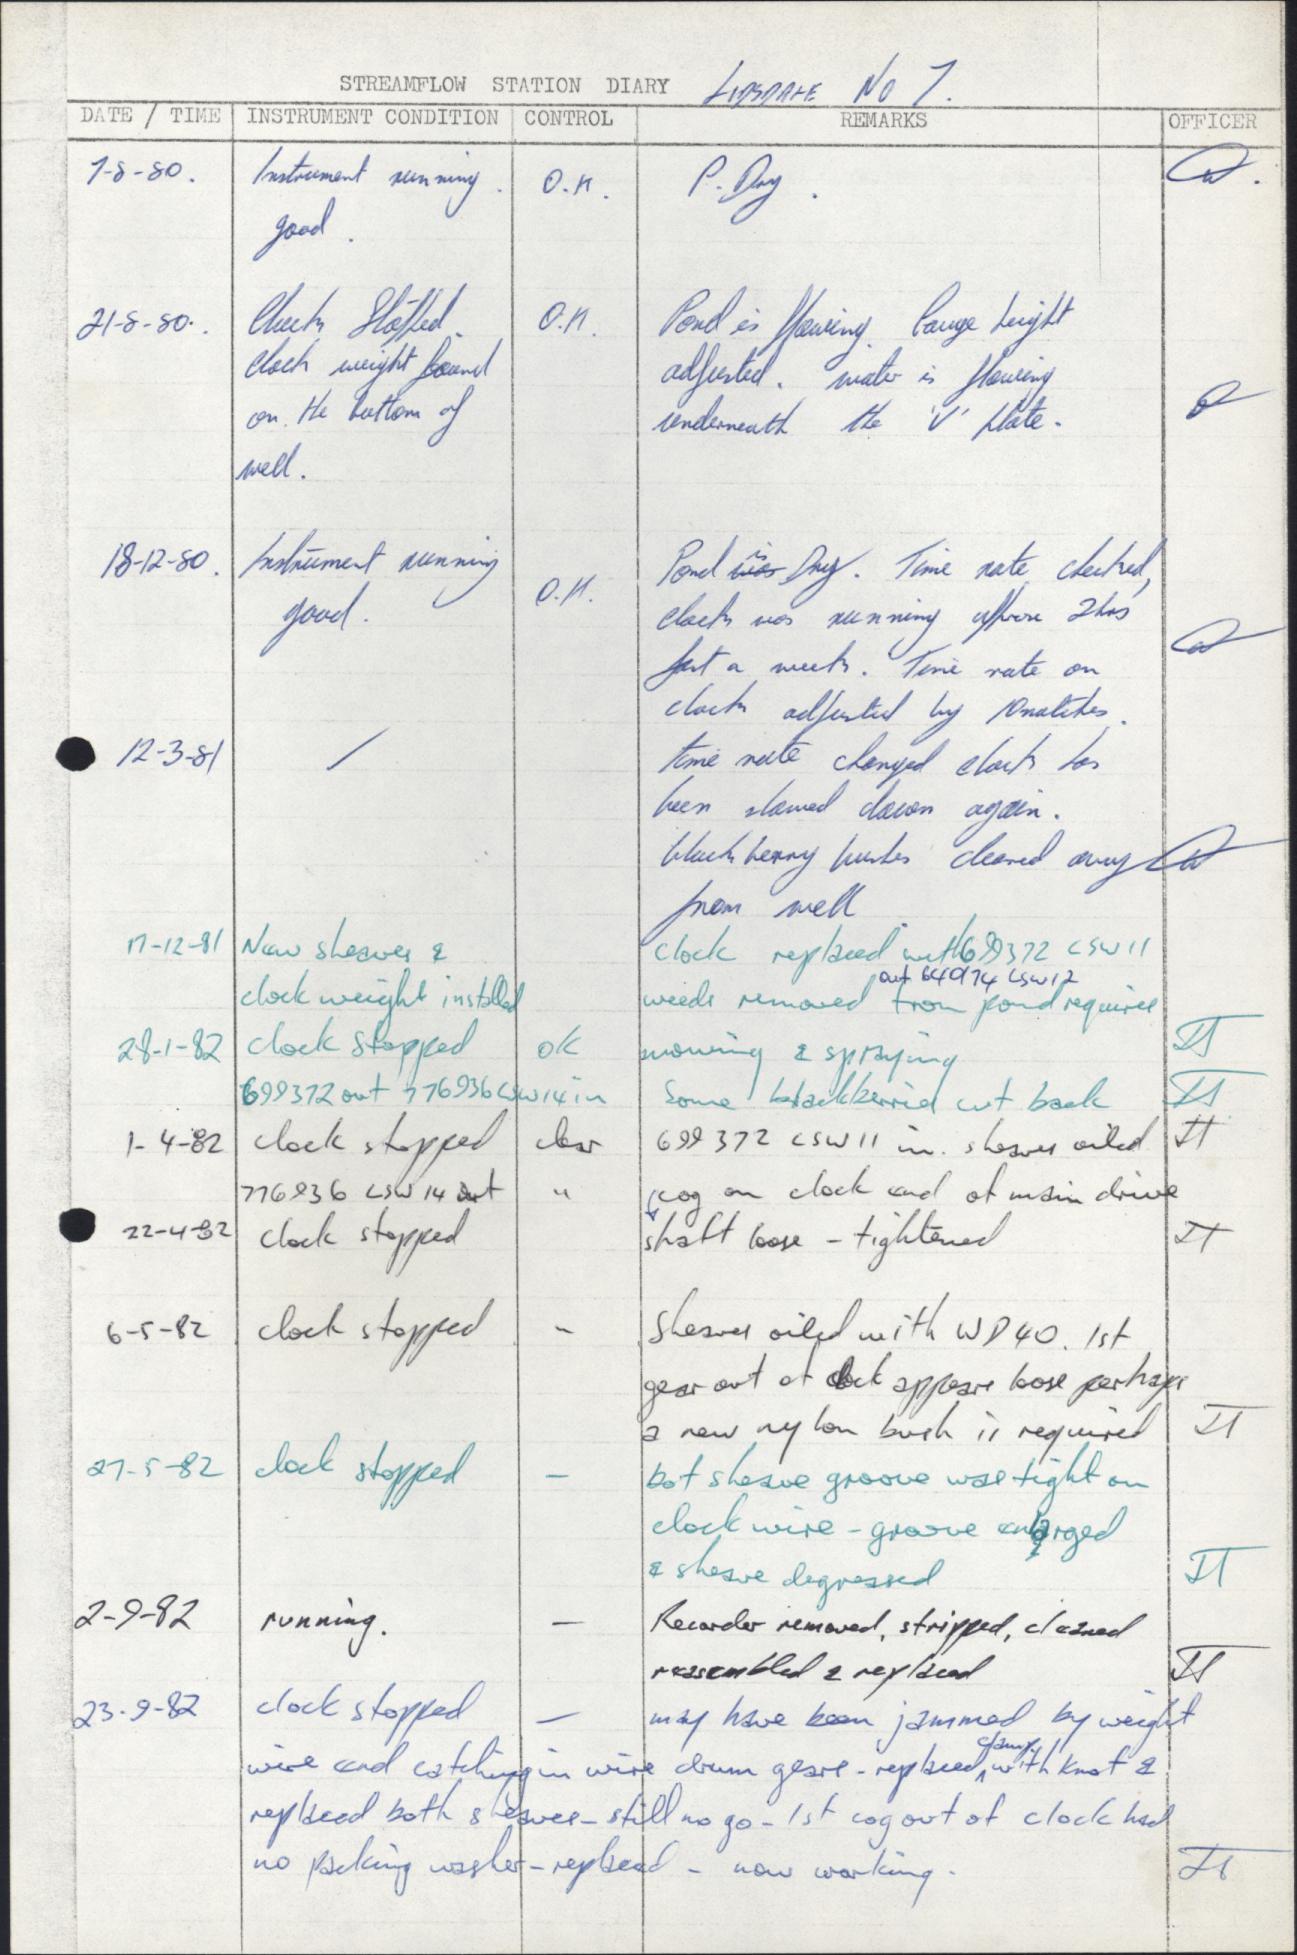 STREAMFLOW STATION DIARY LIDSDALE No 7.
DATE / TIME INSTRUMENT CONDITION CONTROL REMARKS OFFICER
7-8-80. Instrument running. O.K. P. Dry.
good.
21-8-80. Clock Stopped. O.K. Pond is flowing. Gauge height
clock weight found adjusted. water is flowing
on the bottom of underneath the 'V' plate.
well.
18-12-80. Instrument running O.K. Pond is Dry. Time rate checked,
good. clock was running approx 2hrs
fast a week. Time rate on
clock adjusted by 10 notches.
12-3-81 / time rate changed clock has
been slowed down again.
blackberry bushes cleared away
from well
17-12-81 New sheaves & clock replaced with 699372 LSW11
out 640174 LSW12
clock weight installed weeds removed from pond requires
28-1-82 clock stopped OK mowing & spraying JT
699372 out 776936 LSW14 in Some blackberries cut back JT
1-4-82 clock stopped clear 699372 LSW11 in. sheaves oiled JT
776936 LSW14 out " cog on clock end of main drive
22-4-82 clock stopped shaft loose - tightened JT
6-5-82 clock stopped - Sheaves oiled with WD40. 1st
gear out of clock appears loose perhaps
a new nylon bush is required JT
27-5-82 clock stopped - bot sheave groove was tight on
clock wire - groove enlarged
& sheave degreased JT
2-9-82 running. - Recorder removed, stripped, cleaned
reassembled & replaced JT
23-9-82 clock stopped - may have been jammed by weight
wire end catching in wire drum gears - replaced clamp with knot &
replaced both sheaves - still no go - 1st cog out of clock had
no packing washer - replaced - now working. JT